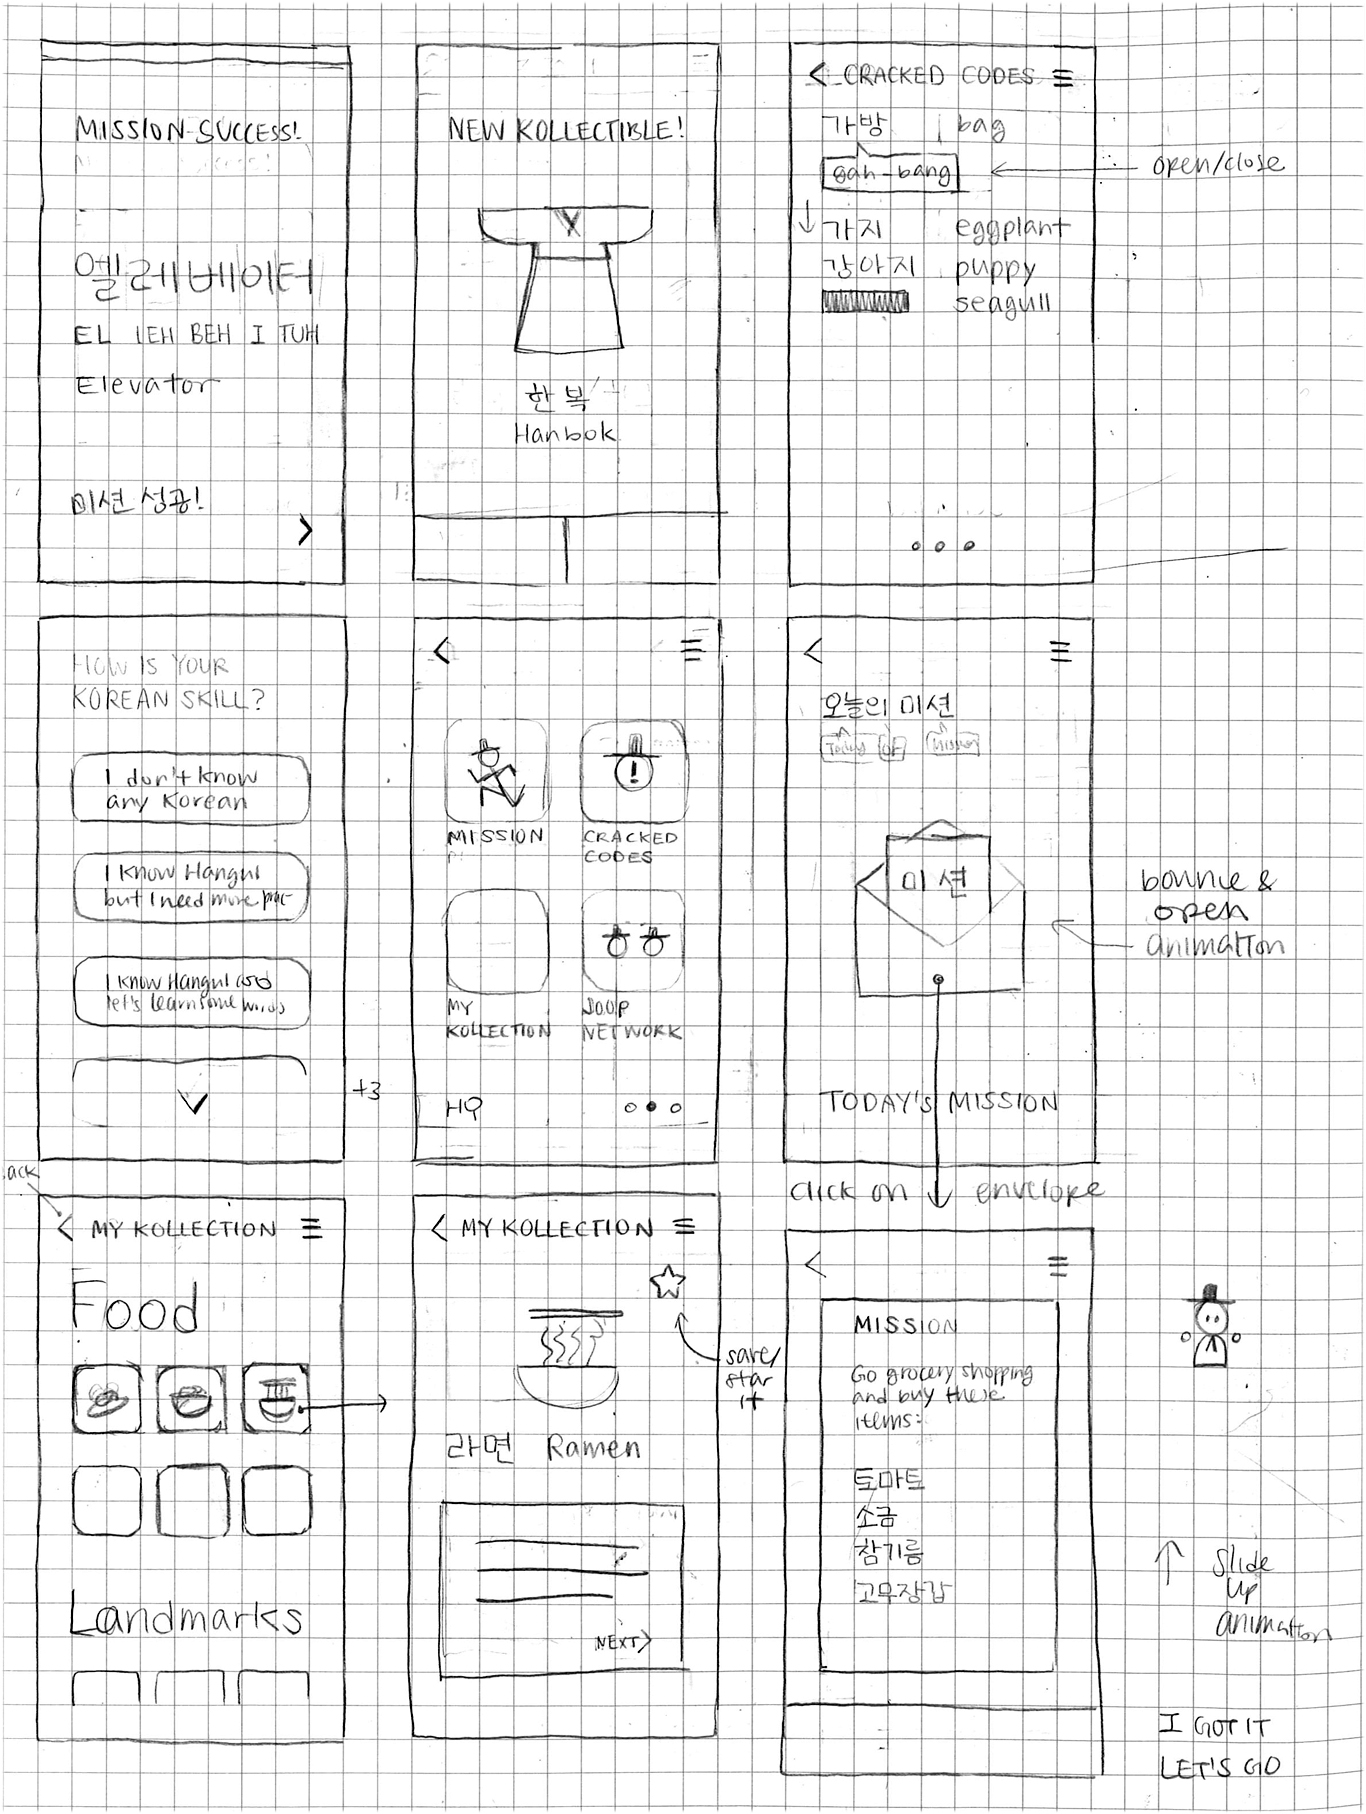 MISSION SUCCESS!
엘레베이터
EL LEH BEH I TUH
Elevator
미션 성공!
NEW KOLLECTIBLE!
한복
Hanbok
CRACKED CODES
가방 bag
gah-bang
open/close
가지 eggplant
강아지 puppy
seagull
HOW IS YOUR
KOREAN SKILL?
I don't know
any Korean
I know Hangul
but I need more prac
I know Hangul and
let's learn some words
+3
MISSION
CRACKED
CODES
MY
KOLLECTION
JOOP
NETWORK
HQ
오늘의 미션
Today OF Mission
미션
bounce &
open
animation
TODAY'S MISSION
click on envelope
ack
MY KOLLECTION
Food
Landmarks
MY KOLLECTION
save/
star
it
라면 Ramen
NEXT
MISSION
Go grocery shopping
and buy these
items:
토마토
소금
참기름
고무장갑
slide
up
animation
I GOT IT
LET'S GO